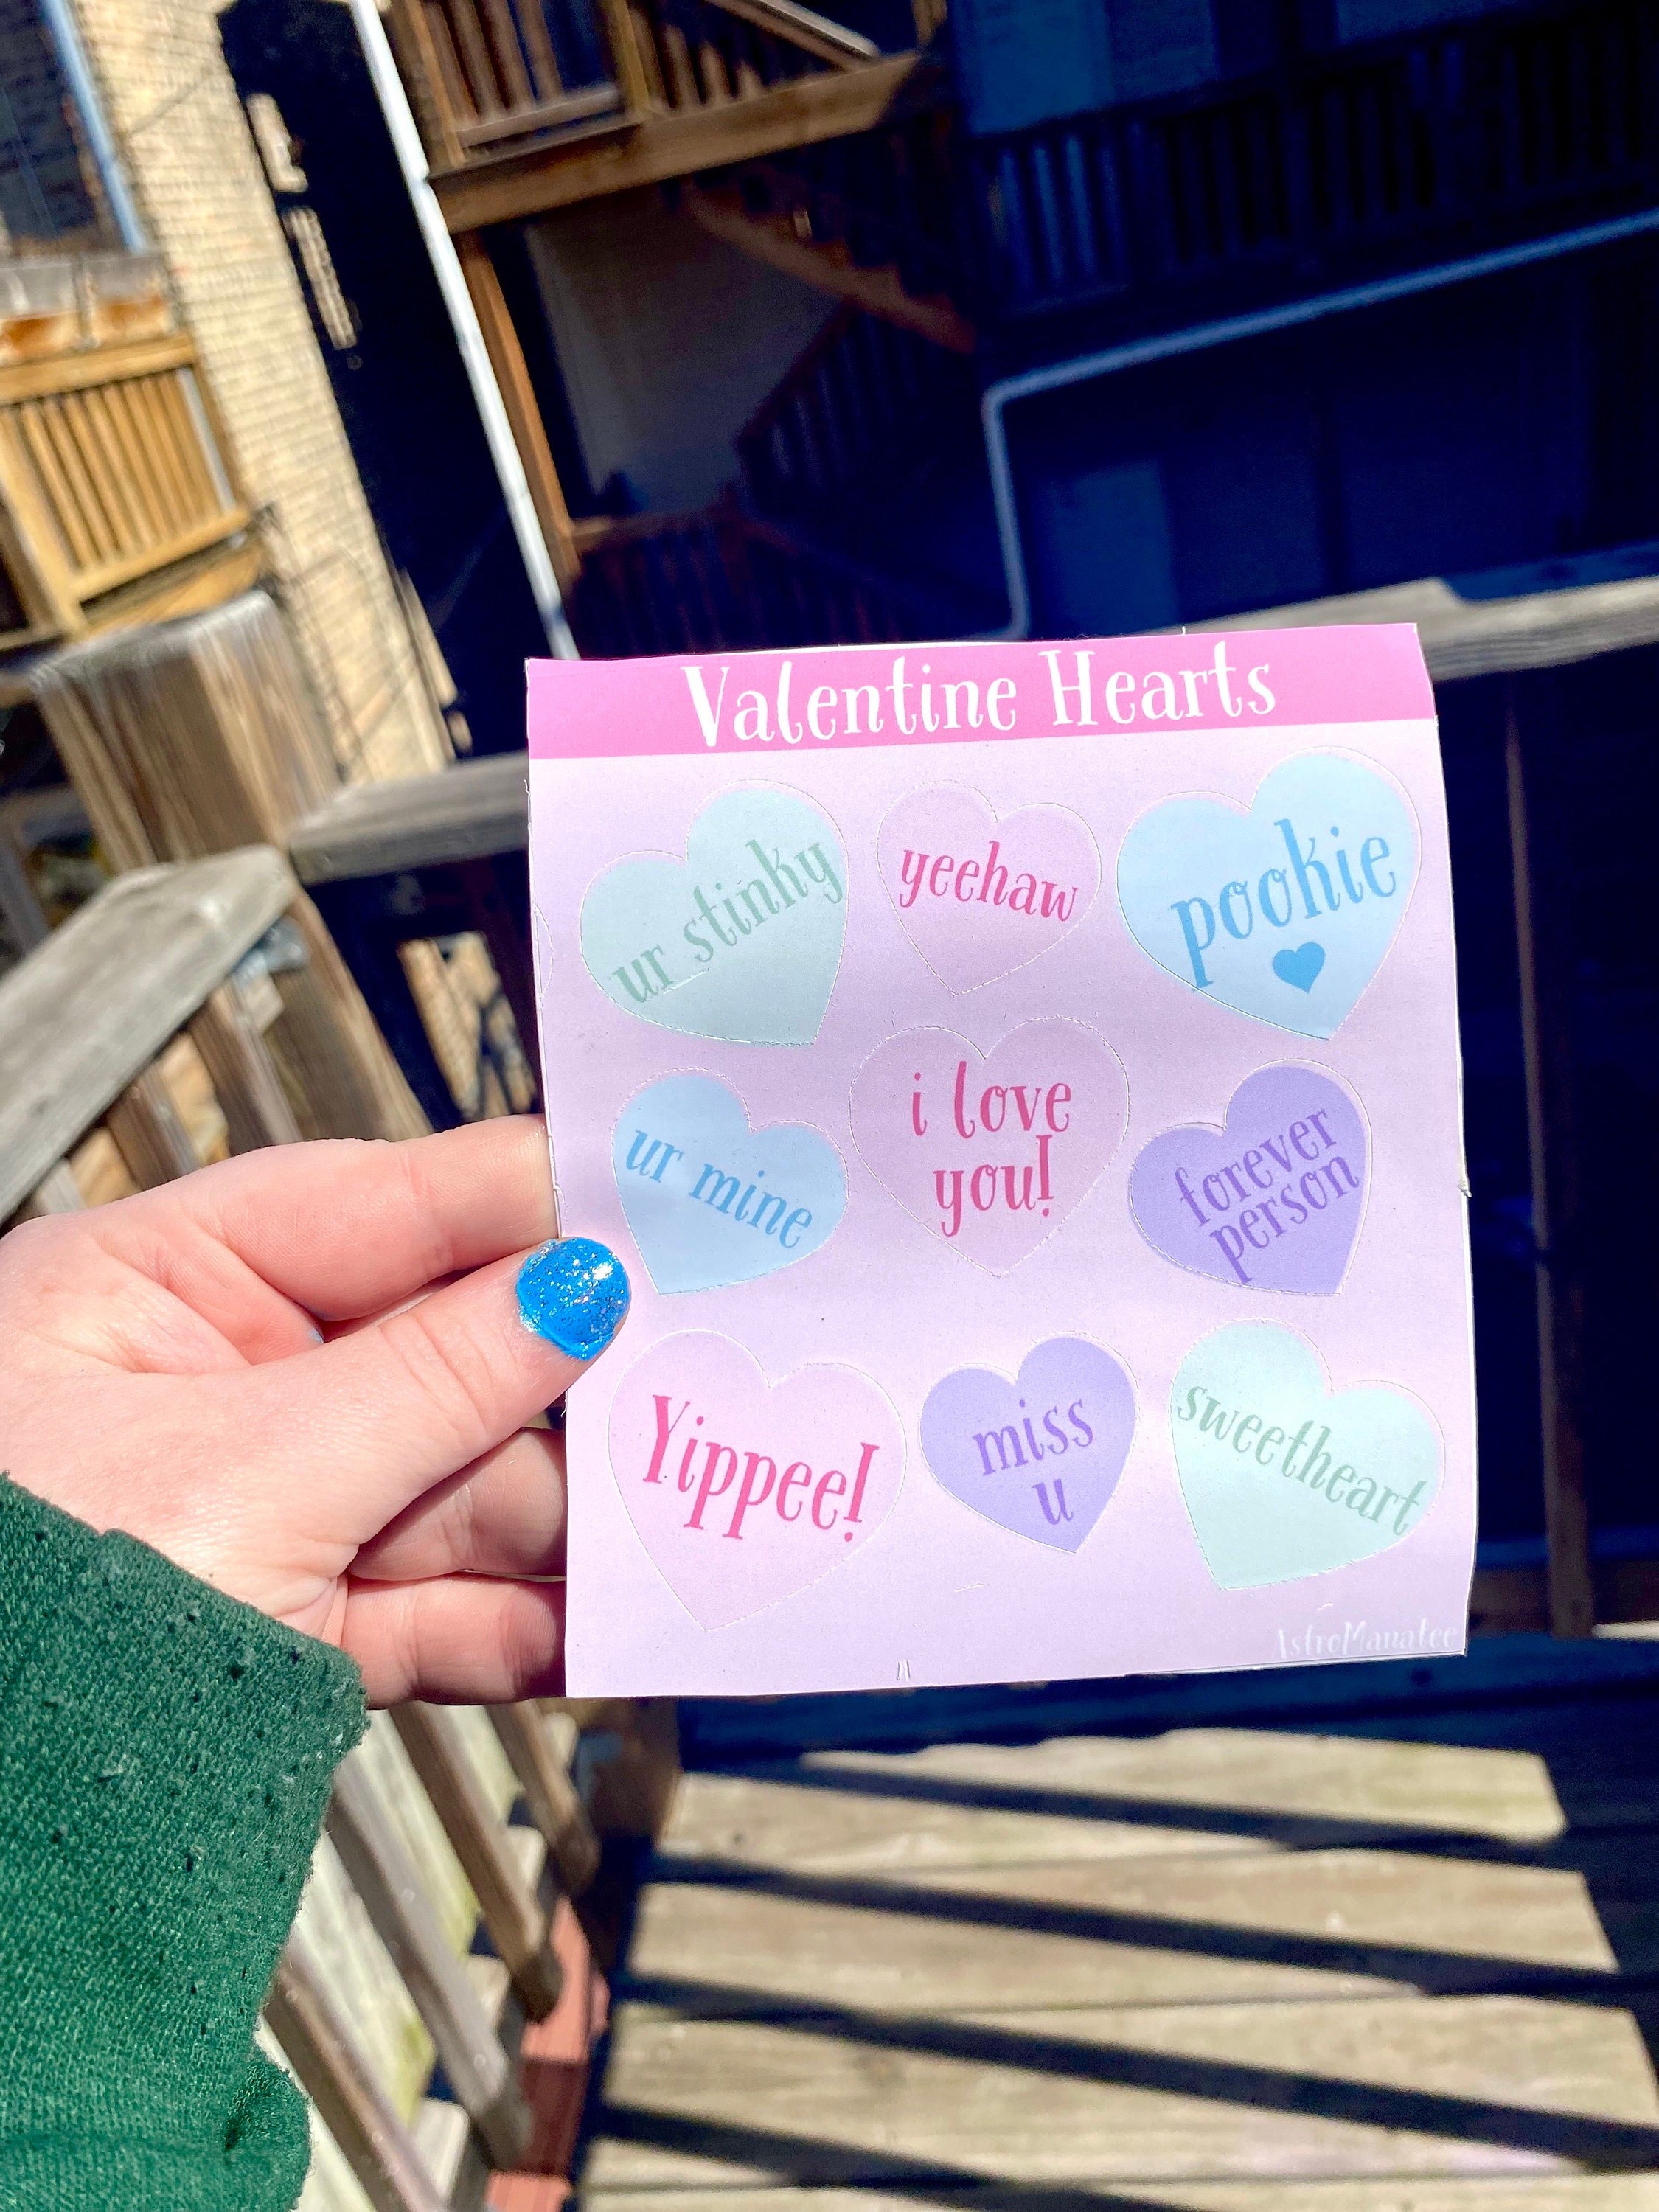 Valentine Hearts
ur stinky
yeehaw
pookie
ur mine
i love
you!
forever
person
Yippee!
miss
u
sweetheart
AstroManatee